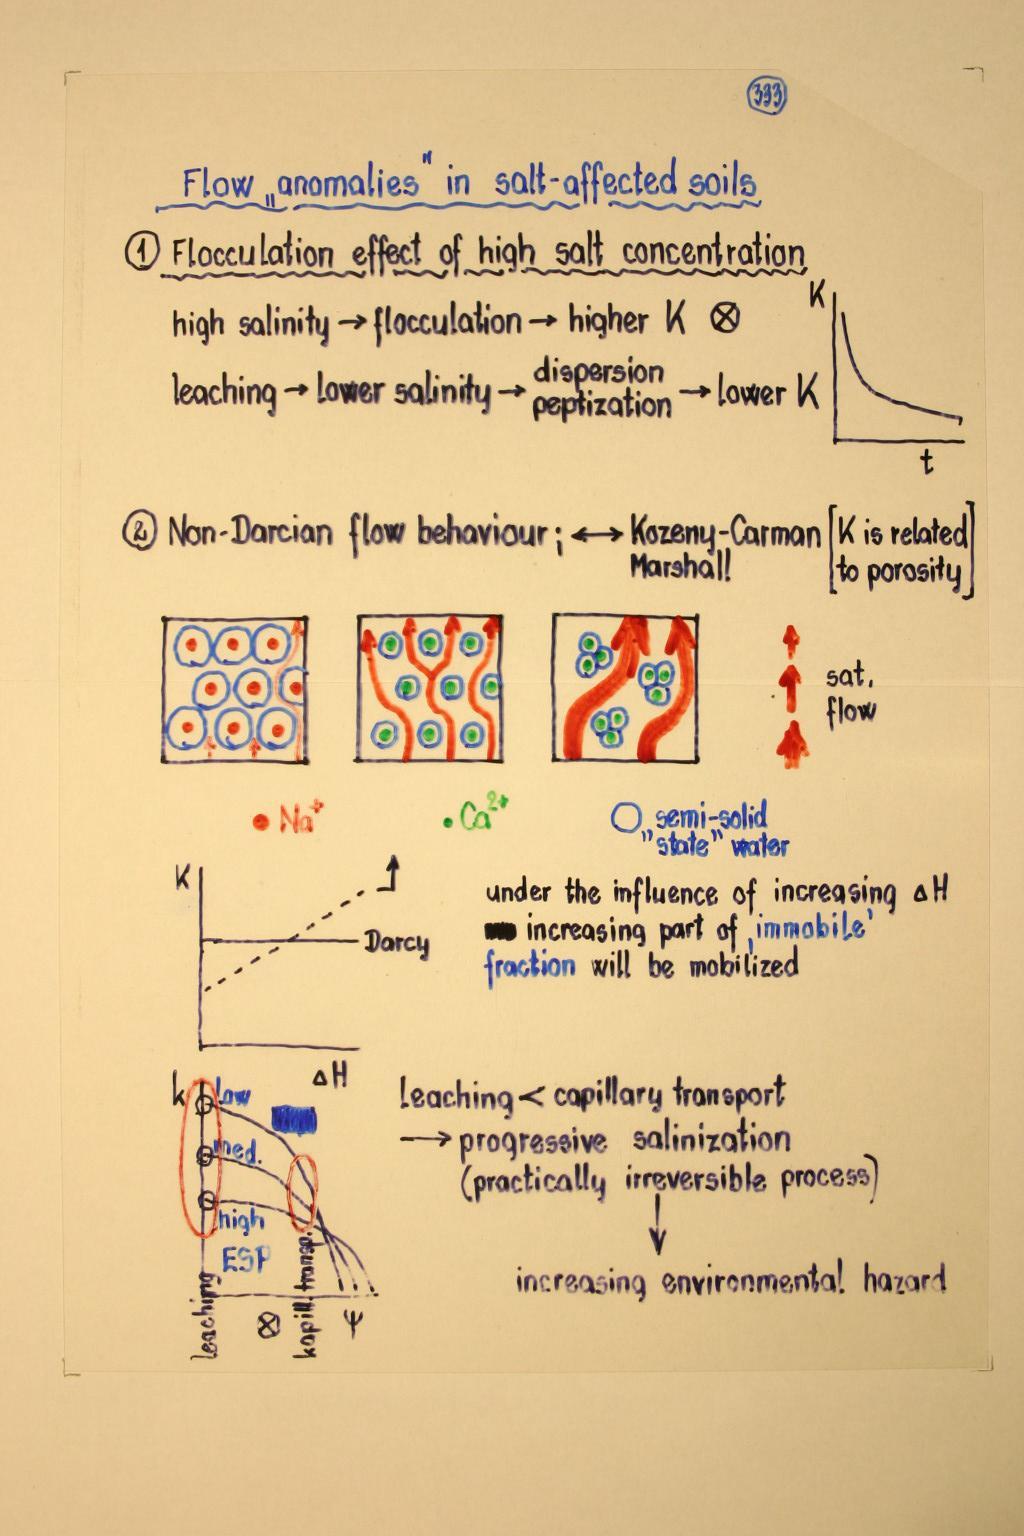 393
Flow „anomalies" in salt-affected soils
① Flocculation effect of high salt concentration
high salinity → flocculation → higher K ⊗
leaching → lower salinity → dispersion peptization → lower K
K
t
② Non-Darcian flow behaviour; ↔ Kozeny-Carman [K is related
Marshall to porosity]
sat.
flow
• Na⁺
• Ca²⁺
○ semi-solid
"state" water
K
Darcy
ΔH
under the influence of increasing ΔH
increasing part of ‚immobile'
fraction will be mobilized
k
low
med.
high
ESP
leaching
⊗
kapill. transp.
Ψ
Leaching < capillary transport
→ progressive salinization
(practically irreversible process)
↓
increasing environmental hazard